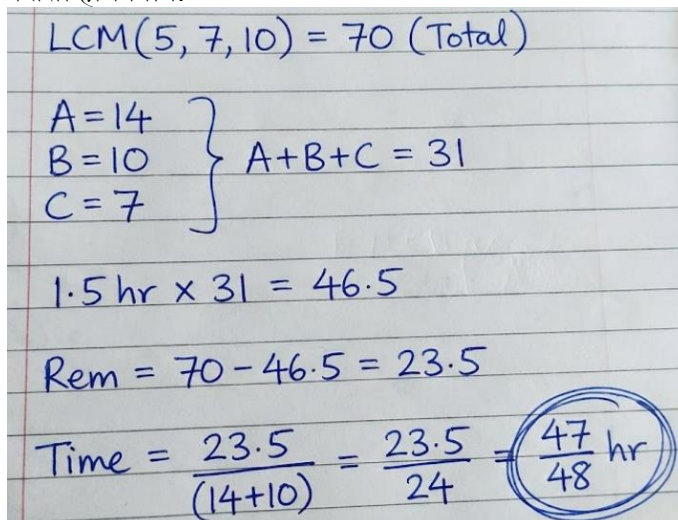 LCM(5, 7, 10) = 70 (Total)
A = 14
B = 10
C = 7
A+B+C = 31
1.5 hr × 31 = 46.5
Rem = 70 - 46.5 = 23.5
Time = 23.5/(14+10) = 23.5/24 = 47/48 hr